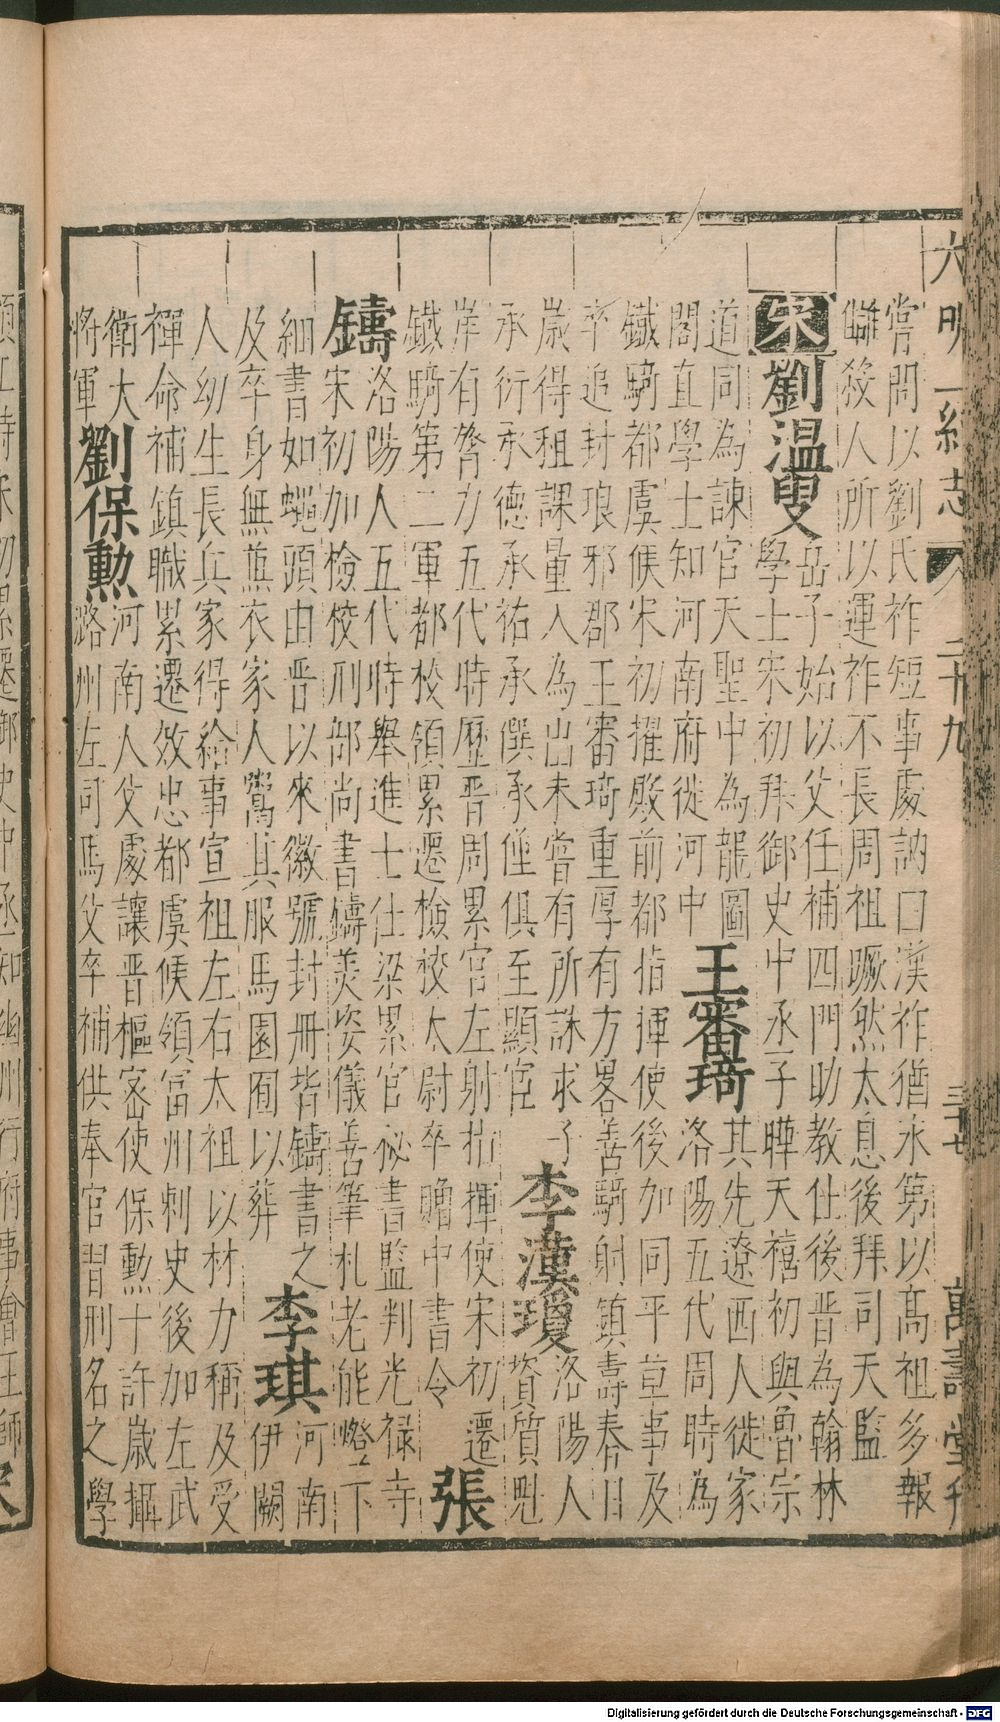 大明一統志 卷二十九 三十七 萬壽堂刊
嘗問以劉氏祚短事處訥曰漢祚猶永第以高祖多報
讎殺人所以運祚不長周祖蹶然太息後拜司天監
宋 劉温叟 岳子始以父任補四門助教仕後晉為翰林
學士宋初拜御史中丞子曄天禧初與魯宗
道同為諫官天聖中為龍圖
閣直學士知河南府徙河中
王審琦 其先遼西人徙家
洛陽五代周時為
鐵騎都虞候宋初擢殿前都指揮使後加同平章事及
卒追封琅邪郡王審琦重厚有方畧善騎射鎮壽春日
歲得租課量入為出未嘗有所誅求子
承衍承德承祐承僎承俊俱至顯官
李漢瓊 洛陽人
資質魁
岸有膂力五代時歷晉周累官左射指揮使宋初遷
鐵騎第二軍都校領累遷檢校太尉卒贈中書令
張鑄 洛陽人五代時舉進士仕梁累官祕書監判光禄寺
宋初加檢校刑部尚書鑄美姿儀善筆札老能燈下
細書如蠅頭由晉以來徽號封冊皆鑄書之
及卒身無兼衣家人鬻其服馬園囿以葬
李琪 河南
伊闕
人幼生長兵家得給事宣祖左右太祖以材力稱及受
禪命補鎮職累遷效忠都虞候領富州刺史後加左武
衛大
將軍
劉保勲 河南人父處讓晉樞密使保勲十許歲攝
潞州左司馬父卒補供奉官習刑名之學
Digitalisierung gefördert durch die Deutsche Forschungsgemeinschaft - DFG